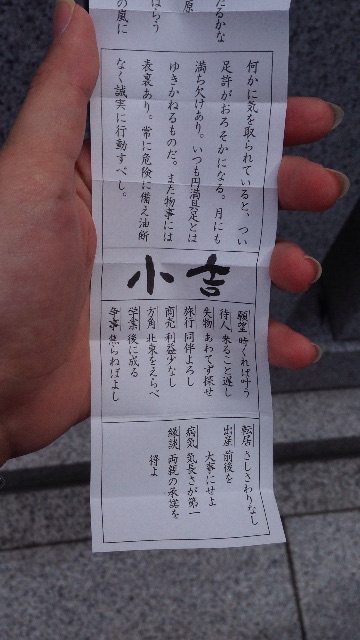 たるかな
原
はらう
の嵐に
何かに気を取られていると、つい
足許がおろそかになる。月にも
満ち欠けあり。いつも円満具足とは
ゆきかねるものだ。また物事には
表裏あり。常に危険に備え油断
なく誠実に行動すべし。
小吉
願望 時くれば叶う
待人 来ること遅し
失物 あわてず探せ
旅行 同伴よろし
商売 利益少なし
方角 北東をえらべ
学業 後に成る
争事 焦らねばよし
転居 さしさわりなし
出産 前後を
大事にせよ
病気 気長さが第一
縁談 両親の承諾を
得よ